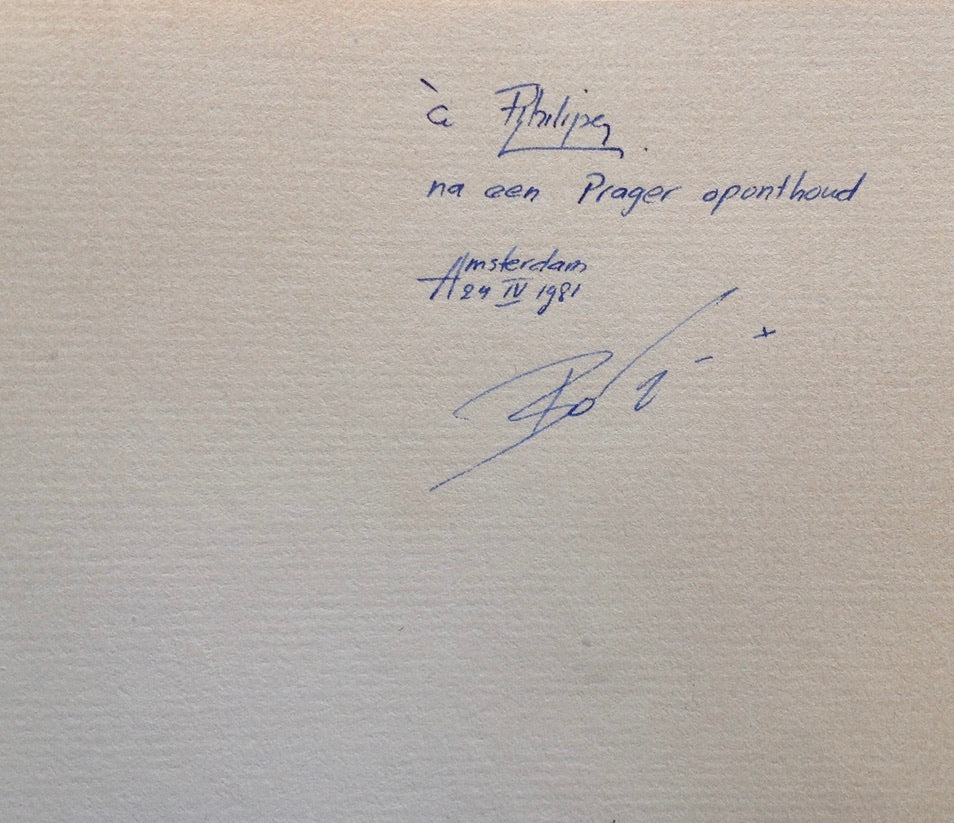 à Philippe
na een Prager oponthoud
Amsterdam
24 IV 1981